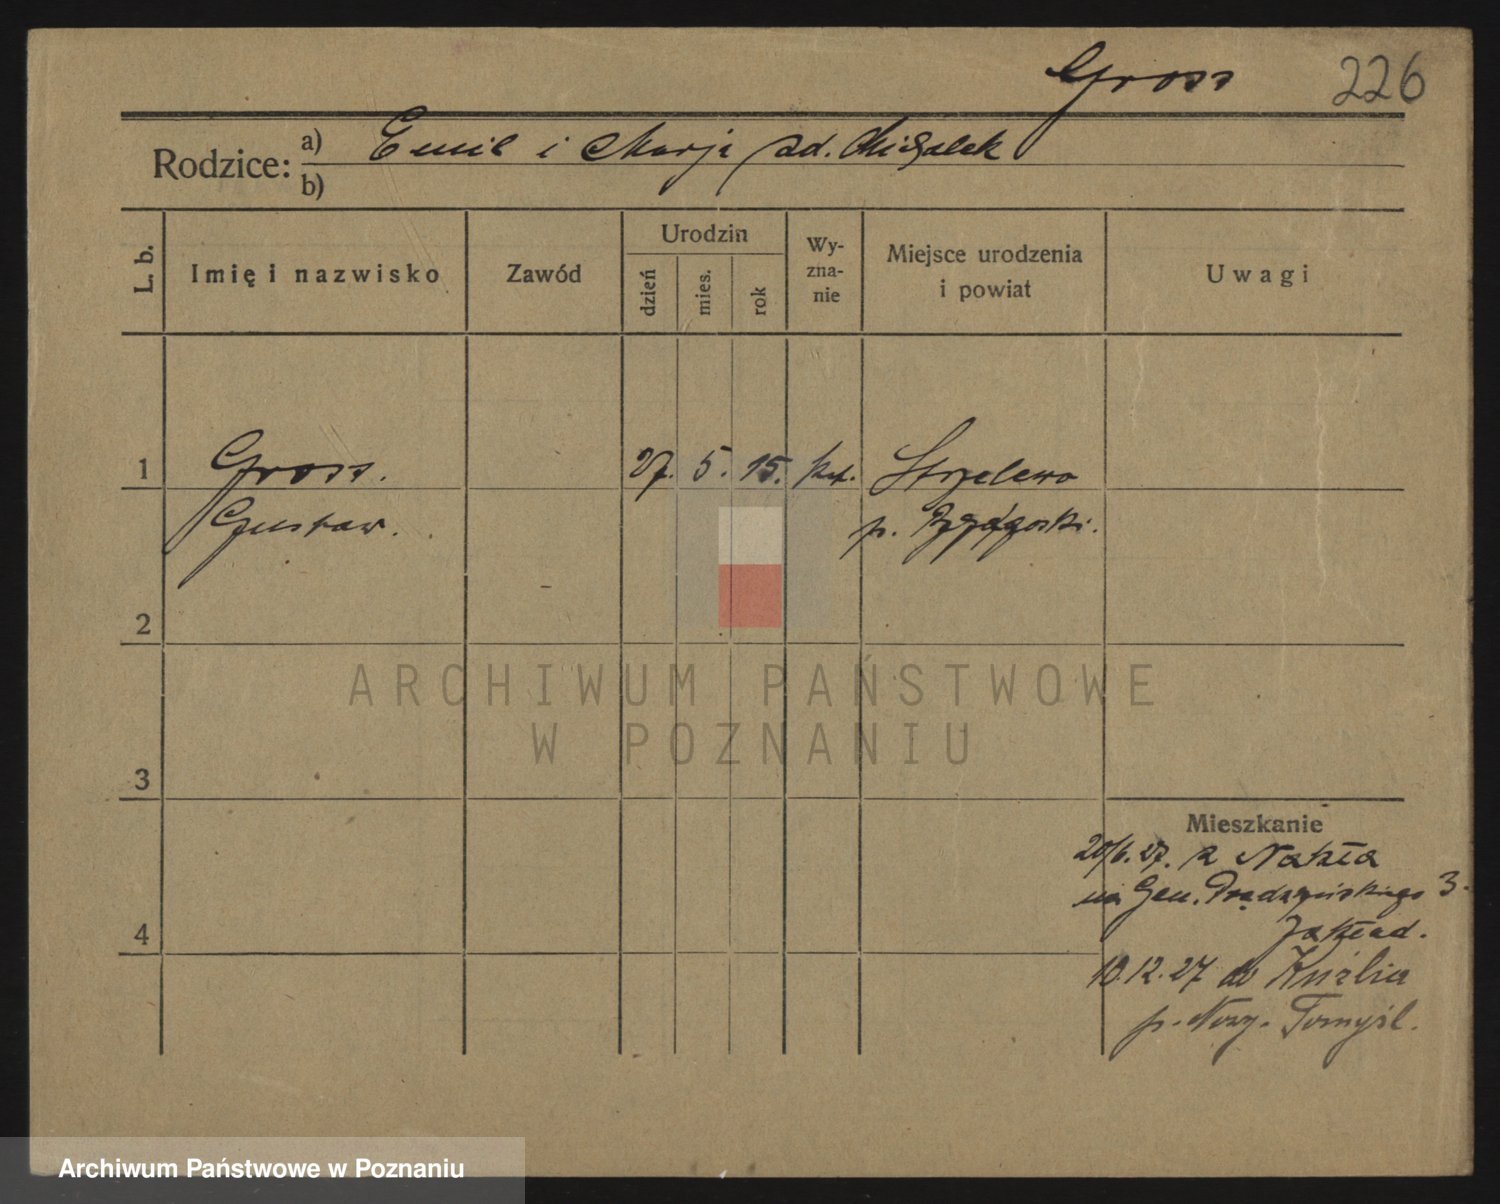 Gross 226
Rodzice: a) Emil i Marja zd. Michalak
b)
L. b. Imię i nazwisko Zawód Urodzin dzień mies. rok Wy-zna-nie Miejsce urodzenia i powiat Uwagi
1 Gross. 27. 5. 15. kat. Strzelewo
Gustaw. p. Bydgoski.
2
ARCHIWUM PAŃSTWOWE
W POZNANIU
3
Mieszkanie
20/6.27. z Nakła
na Gen. Prądzyńskiego 3.
Zakład.
4
10.12.27 do
p. Nowy-Tomyśl.
Archiwum Państwowe w Poznaniu